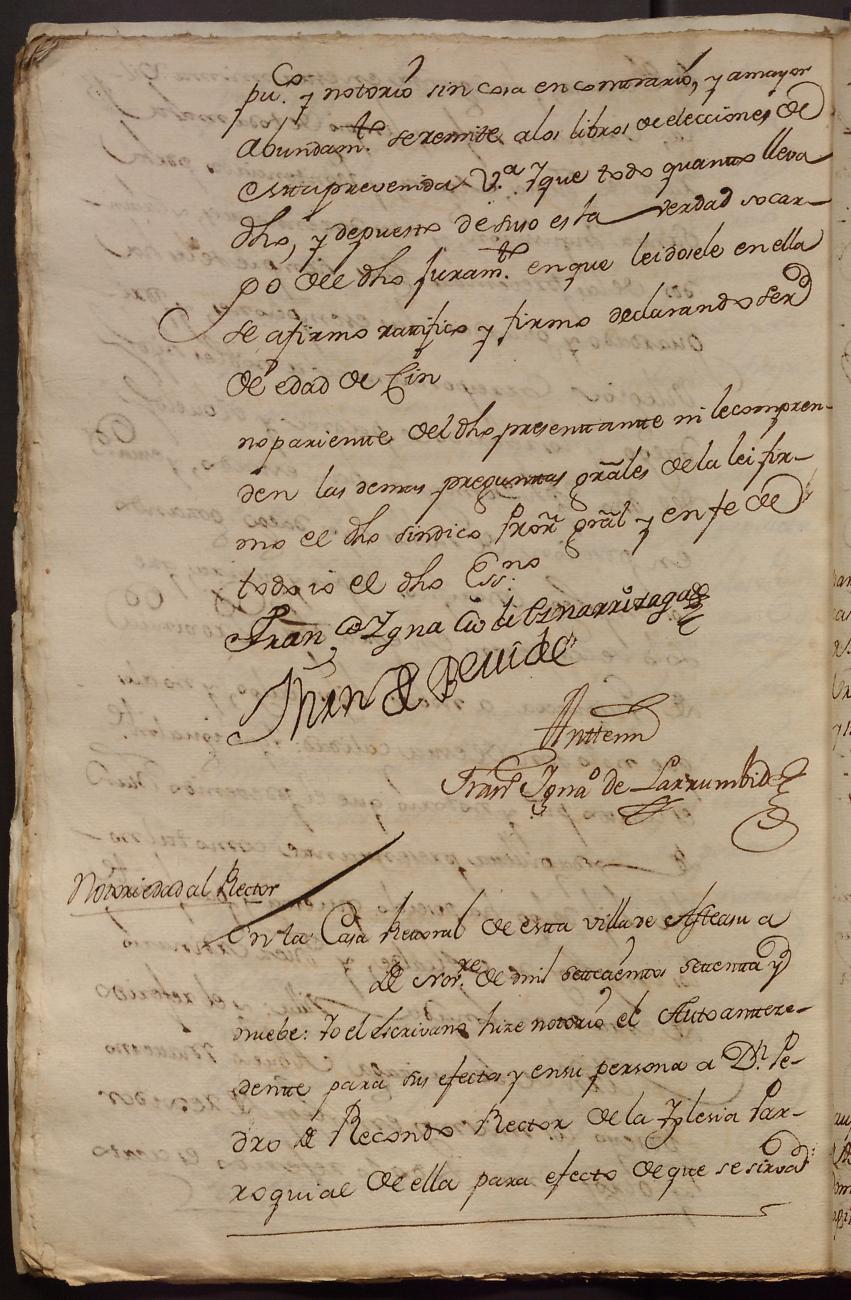 puco. y notorio sin cosa en contrario, y amayor
abundamto. se remite alos libros de elecciones de
esta prevenida Va. Y que todo quanto lleva
dho, y depuesto de suso es la verdad socar-
go del dho juramto. en que leidosele en ella
se afirmo ratifico y firmo declarando ser
de edad de Cin
no pariente del dho presentante ni le compren-
den las demas preguntas grâles de la lei fir-
mo el dho sindico Pror grâl y en fe de
todo io el dho Essno.
Franco Ygnacio de Eznarrizaga
Antemi
Franco Ignao de Larrumbide
Notoriedad al Rector
En la Casa Rectoral de esta villa de Asteasu a
de Novre. de mil settecientos settenta y
nuebe: Yo el Escrivano hize notorio el Auto antteze-
dentte para sus efectos y en su persona a Dn. Pe-
dro de Recondo Rector de la Yglesia Par-
roquial de ella para efecto de que se sirva